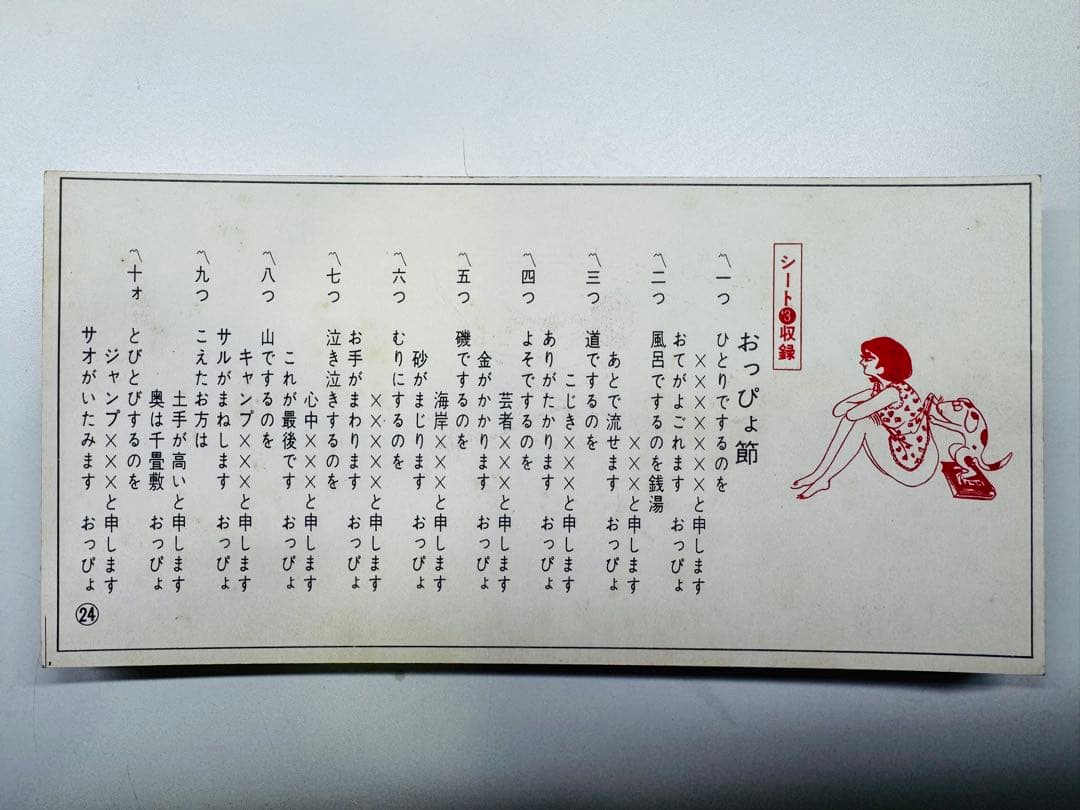 シート③収録
おっぴょ節
〽一つ ひとりでするのを
×××××と申します
おてがよごれます おっぴょ
〽二つ 風呂でするのを銭湯
×××と申します
あとで流せます おっぴょ
〽三つ 道でするのを
こじき×××と申します
ありがたかります おっぴょ
〽四つ よそでするのを
芸者×××と申します
金がかかります おっぴょ
〽五つ 磯でするのを
海岸×××と申します
砂がまじります おっぴょ
〽六つ むりにするのを
××××と申します
お手がまわります おっぴょ
〽七つ 泣き泣きするのを
心中×××と申します
これが最後です おっぴょ
〽八つ 山でするのを
キャンプ×××と申します
サルがまねします おっぴょ
〽九つ こえたお方は
土手が高いと申します
奥は千畳敷 おっぴょ
〽十ォ とびとびするのを
ジャンプ×××と申します
サオがいたみます おっぴょ
㉔